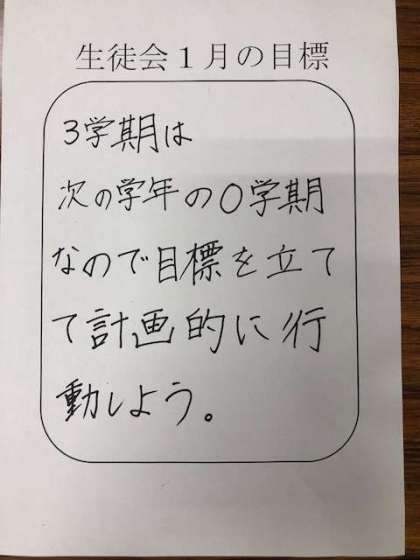 生徒会１月の目標
3学期は
次の学年の0学期
なので目標を立て
て計画的に行
動しよう。